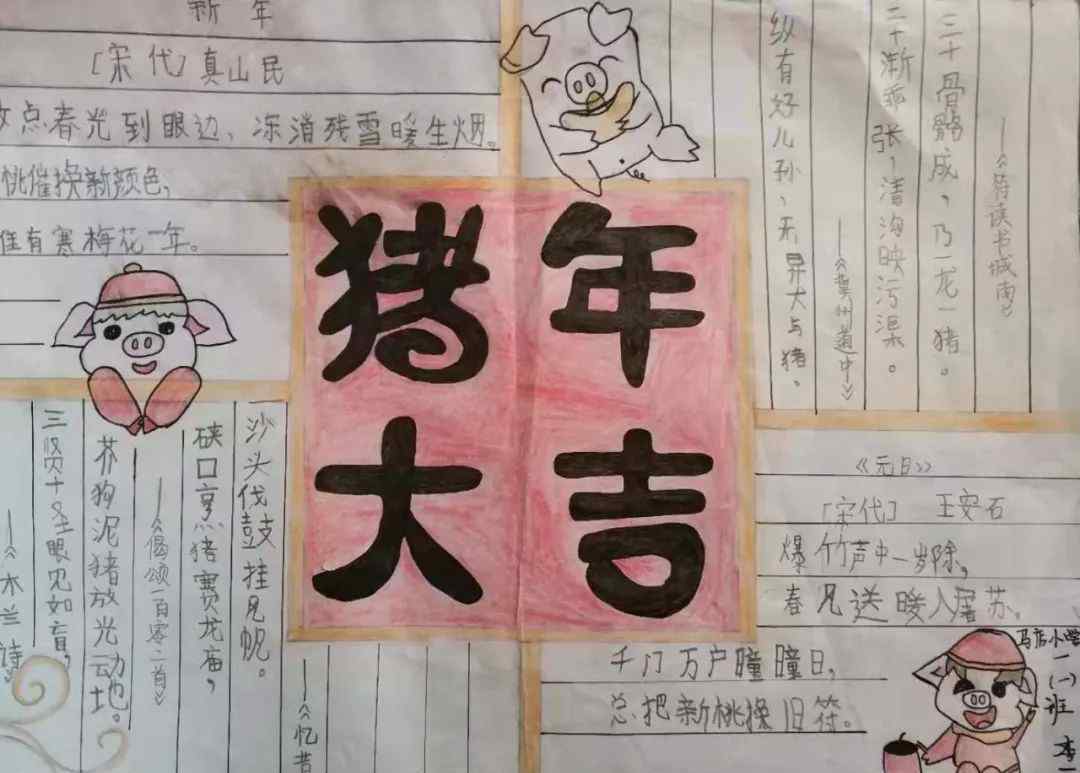 新年
[宋代]真山民
点春光到眼边、冻消残雪暖生烟。
桃催换新颜色,
有寒梅花一年。
猪年
大吉
三十骨骼成，乃一龙一猪。
二十渐乖张，清沟映污渠。
——《符读书城南》
纵有好儿孙、无异犬与猪、
——《冀州道中》
沙头伐鼓挂见帆。
硖口烹猪赛龙庙，
——《偈颂一百零二首》
芥狗泥猪放光动地。
三贤十圣眼见如盲，
——《木兰诗》
——《忆昔
《元日》
[宋代] 王安石
爆竹声中一岁除,
春风送暖入屠苏。
千门万户瞳瞳日,
总把新桃换旧符。
马店小学
一(一)班 李